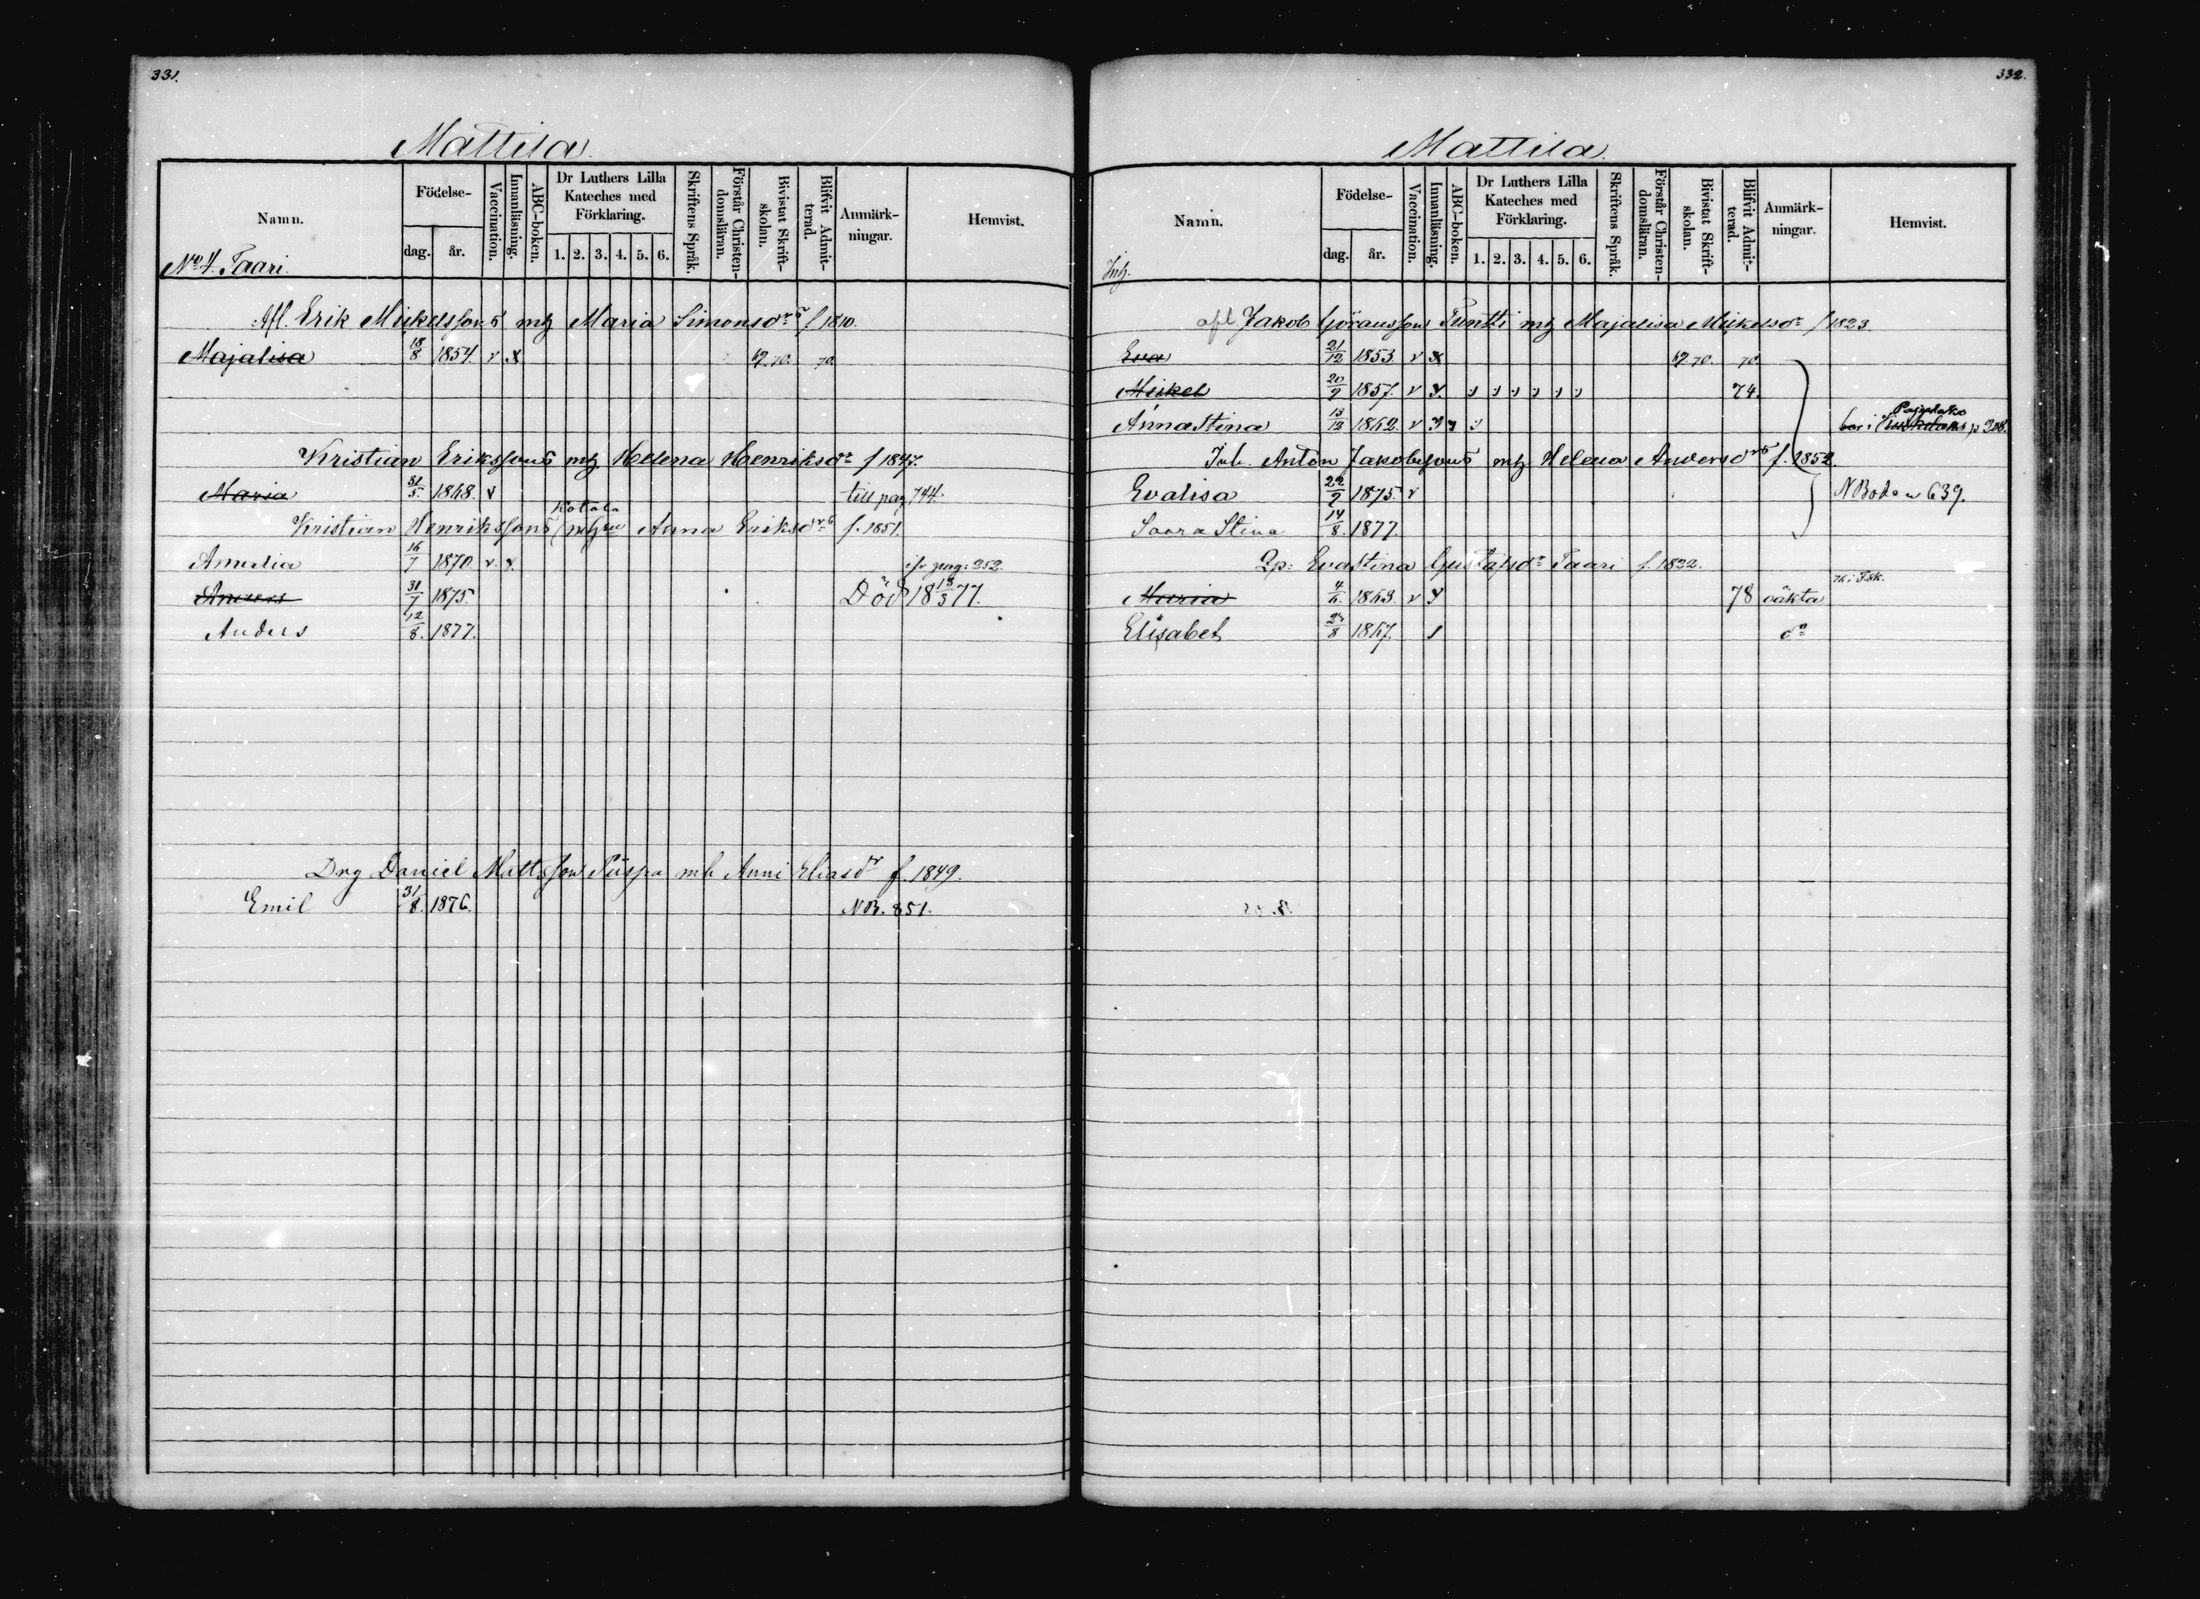 331.
Mattila
Namn. Födelse- dag. år. Vaccination. Innanläsning. ABC-boken. Dr Luthers Lilla Kateches med Förklaring. 1. 2. 3. 4. 5. 6. Skriftens Språk. Förstår Christendomsläran. Bivistat Skriftskolan. Blifvit Admitterad. Anmärkningar. Hemvist.
No 4. Taari
Afl. Erik Mickelssons mh Maria Simonsdrs f 1810.
Majalisa 18/8 1854. v x 69.70. 70.
Kristian Erikssons mh Helena Henriksdr f 1847.
Maria 31/5 1868. v till pag 744.
Kotola
Kristian Henrikssons Anna Eriksdrs f. 1851.
Amalia 16/7 1870. v. x. pag: 252.
Anders 31/7 1875. Död 18 18/3 77.
Anders 12/8. 1877.
Drg Daniel Mattsson Piispa mh Anni Eliasdr f. 1849.
Emil 31/8. 1876. NB. 851.
332.
Mattila
Namn. Födelse- dag. år. Vaccination. Innanläsning. ABC-boken. Dr Luthers Lilla Kateches med Förklaring. 1. 2. 3. 4. 5. 6. Skriftens Språk. Förstår Christendomsläran. Bivistat Skriftskolan. Blifvit Admitterad. Anmärkningar. Hemvist.
Inh.
afl Jakob Göransson Puntti mh Majalisa Mickelsdr f 1823
Eva 21/12 1853 v x 69 70. 70
Mickel 20/9 1857. v x. 74.
Annastina 13/12 1862. v bor i p 208.
Inh. Anton Jakobssons mh Helena Andersdrs f. 1852.
Evalisa 22/9 1875 v N Boden 639.
Saara Stina 14/8. 1877.
Qp: Evastina Gustafsdr Taari f. 1822.
Maria 4/6. 1863. v x 78 oäkta
Elisabet 1867. do